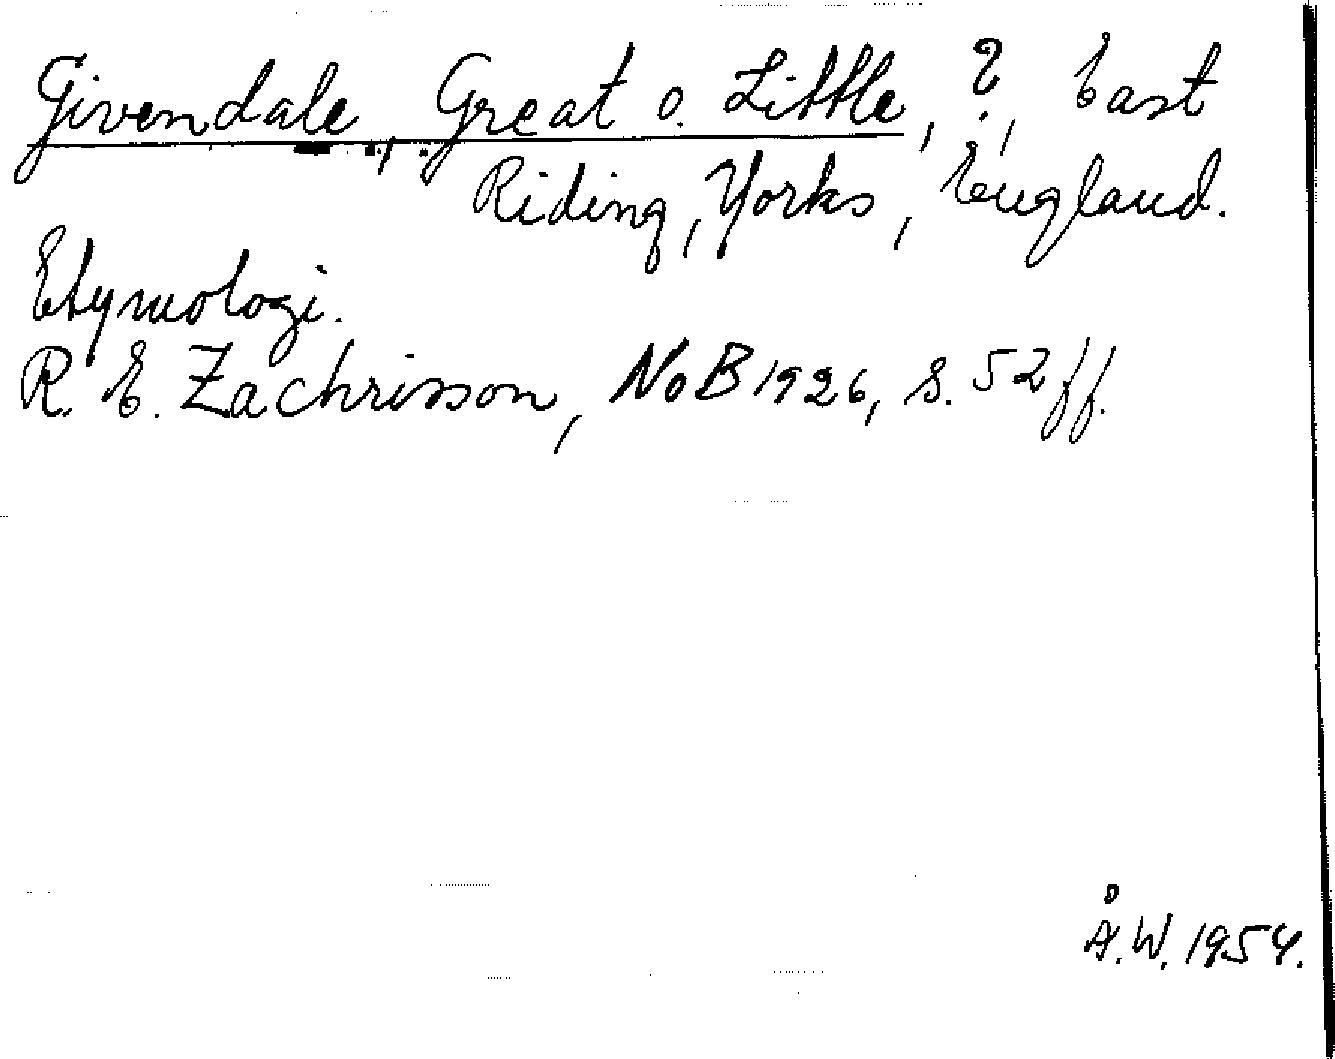 Givendale, Great o. Little, ?, East
Riding, Yorks, England.
Etymologi.
R. E. Zachrisson, NoB 1926, s. 52 ff.
Å.W. 1954.